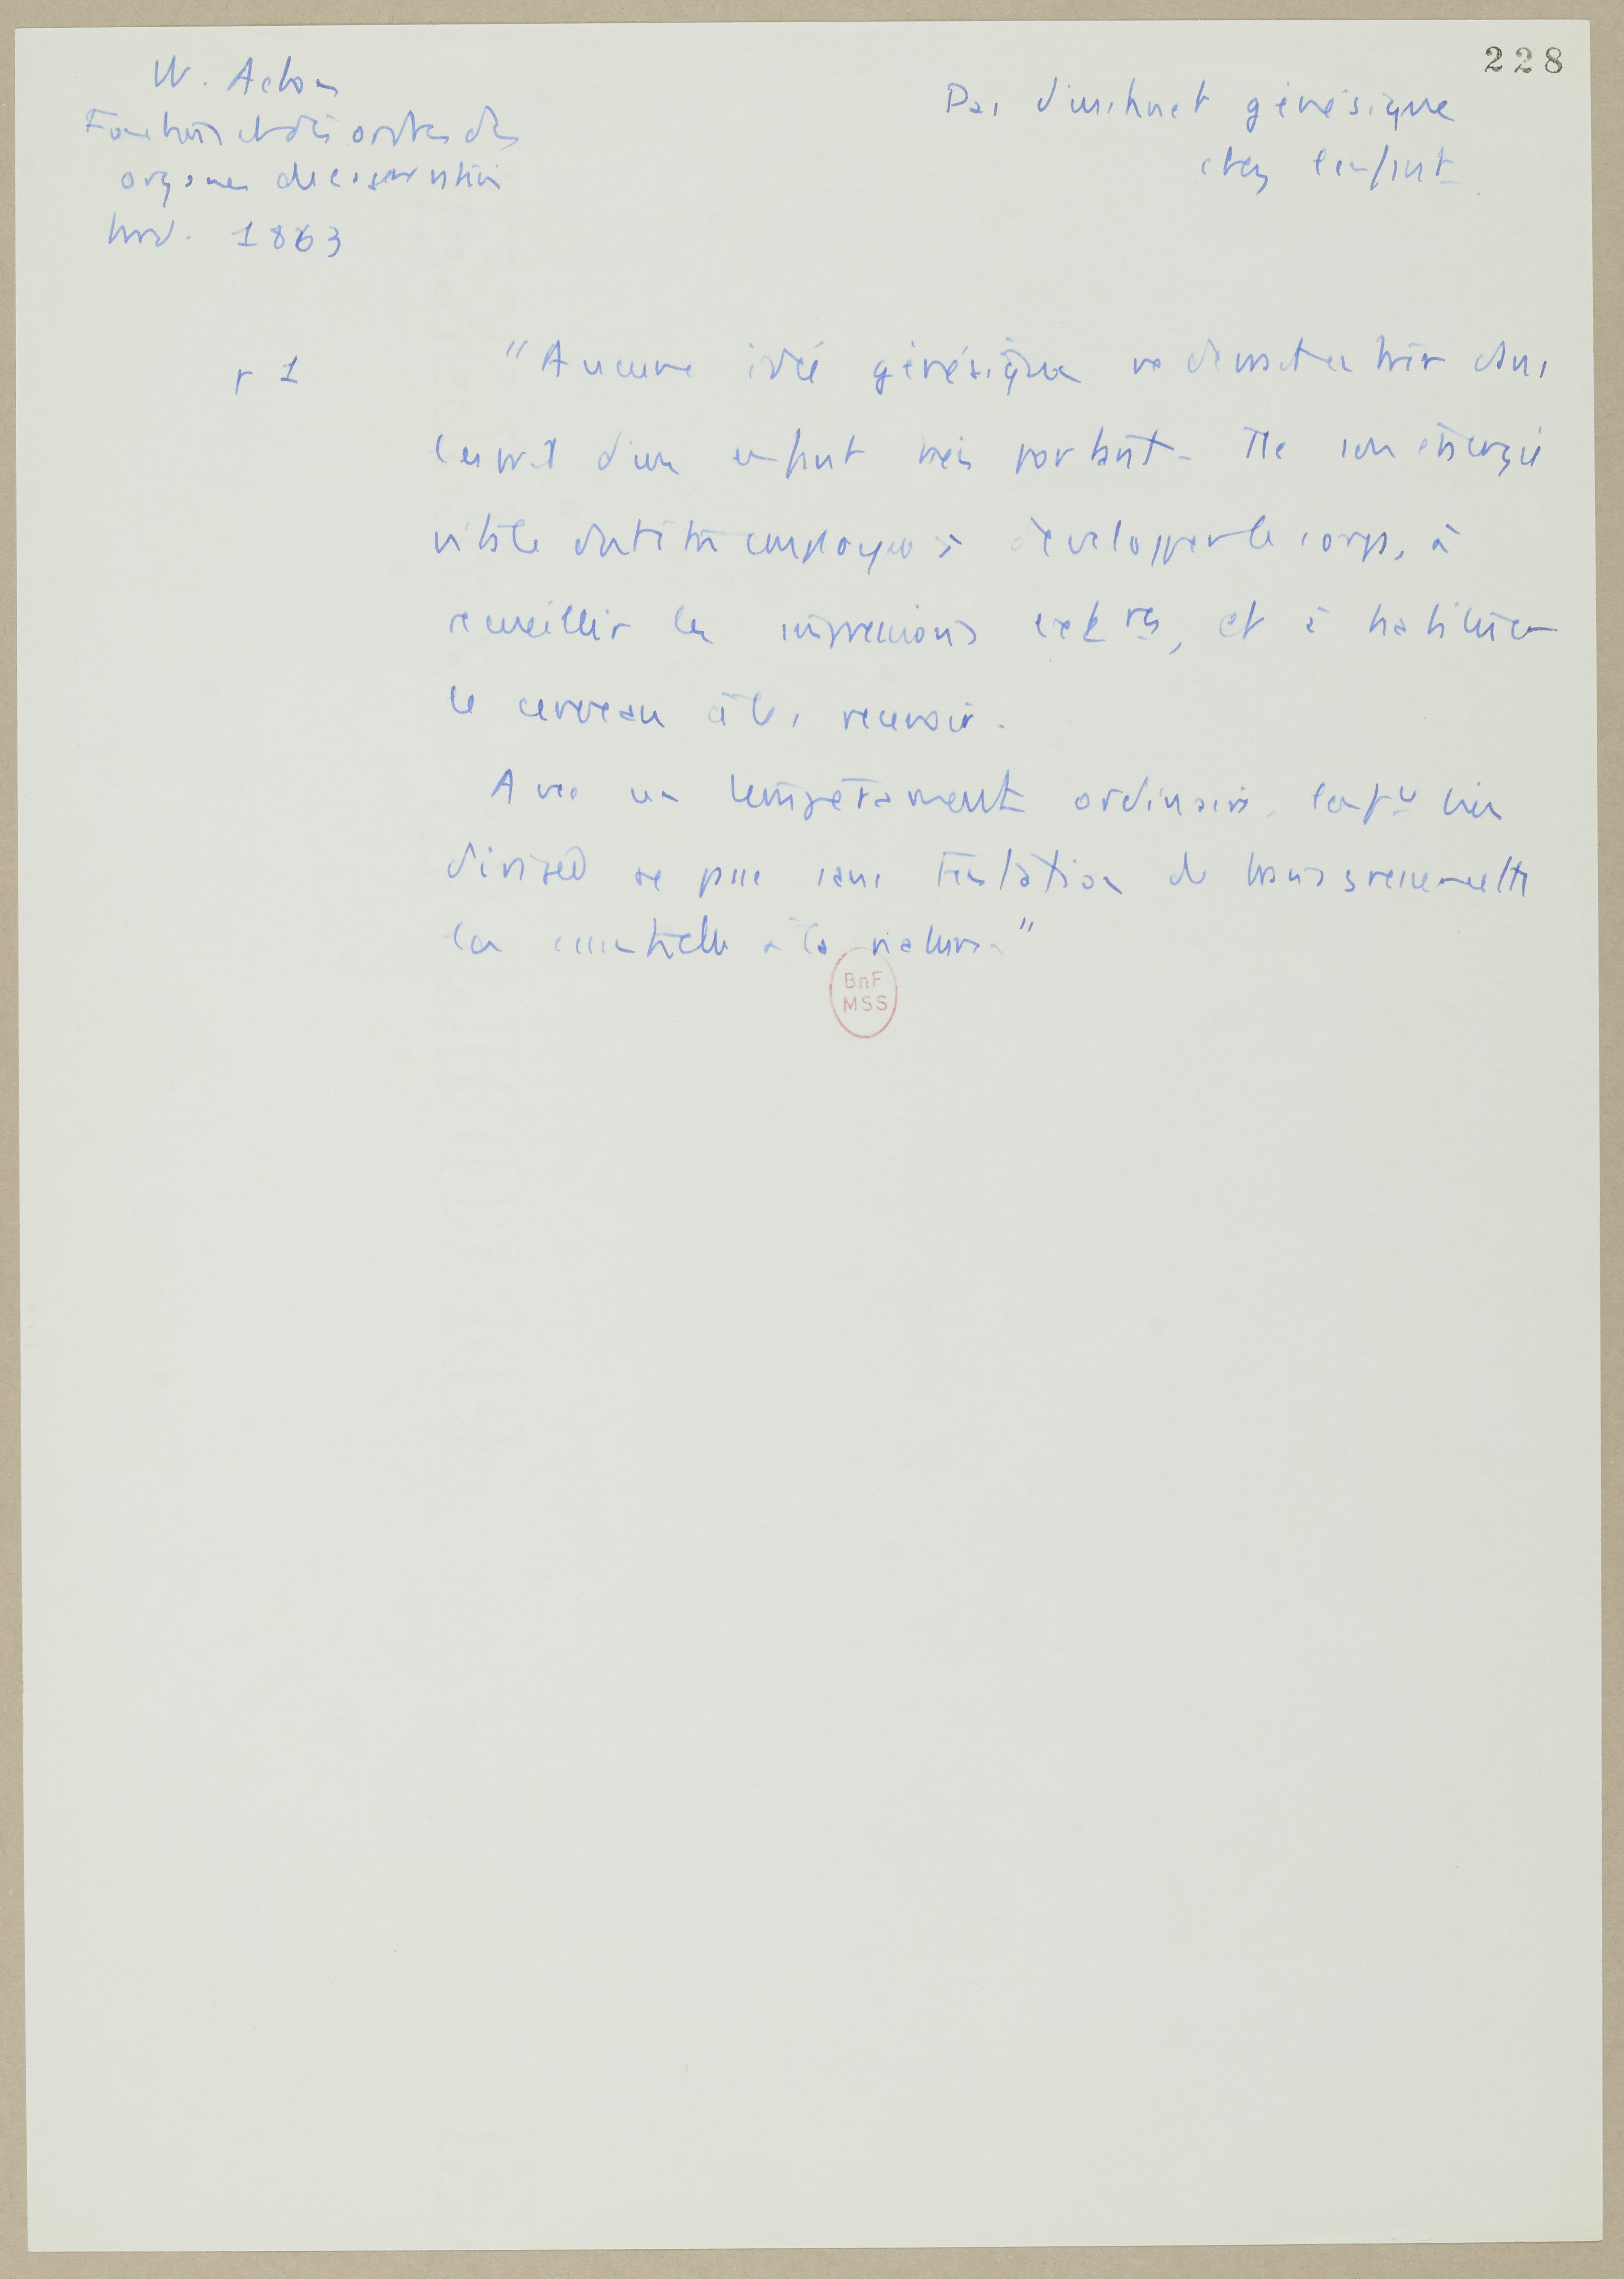 228
W. Acton
Fonctions et désordres des
organes de la génération
trad. 1863
Pas d'instinct génésique
chez l'enfant.
p 1
"Aucune idée génésique ne devrait entrer dans
l'esprit d'un enfant bien portant. Tte son énergie
vitale doit être employée à développer le corps, à
recueillir les impressions extres, et à habituer
le cerveau à les recevoir.
Avec un tempérament ordinaire, l'enfce bien
dirigée se passe sans tentation de
à la nature."
BnF
MSS